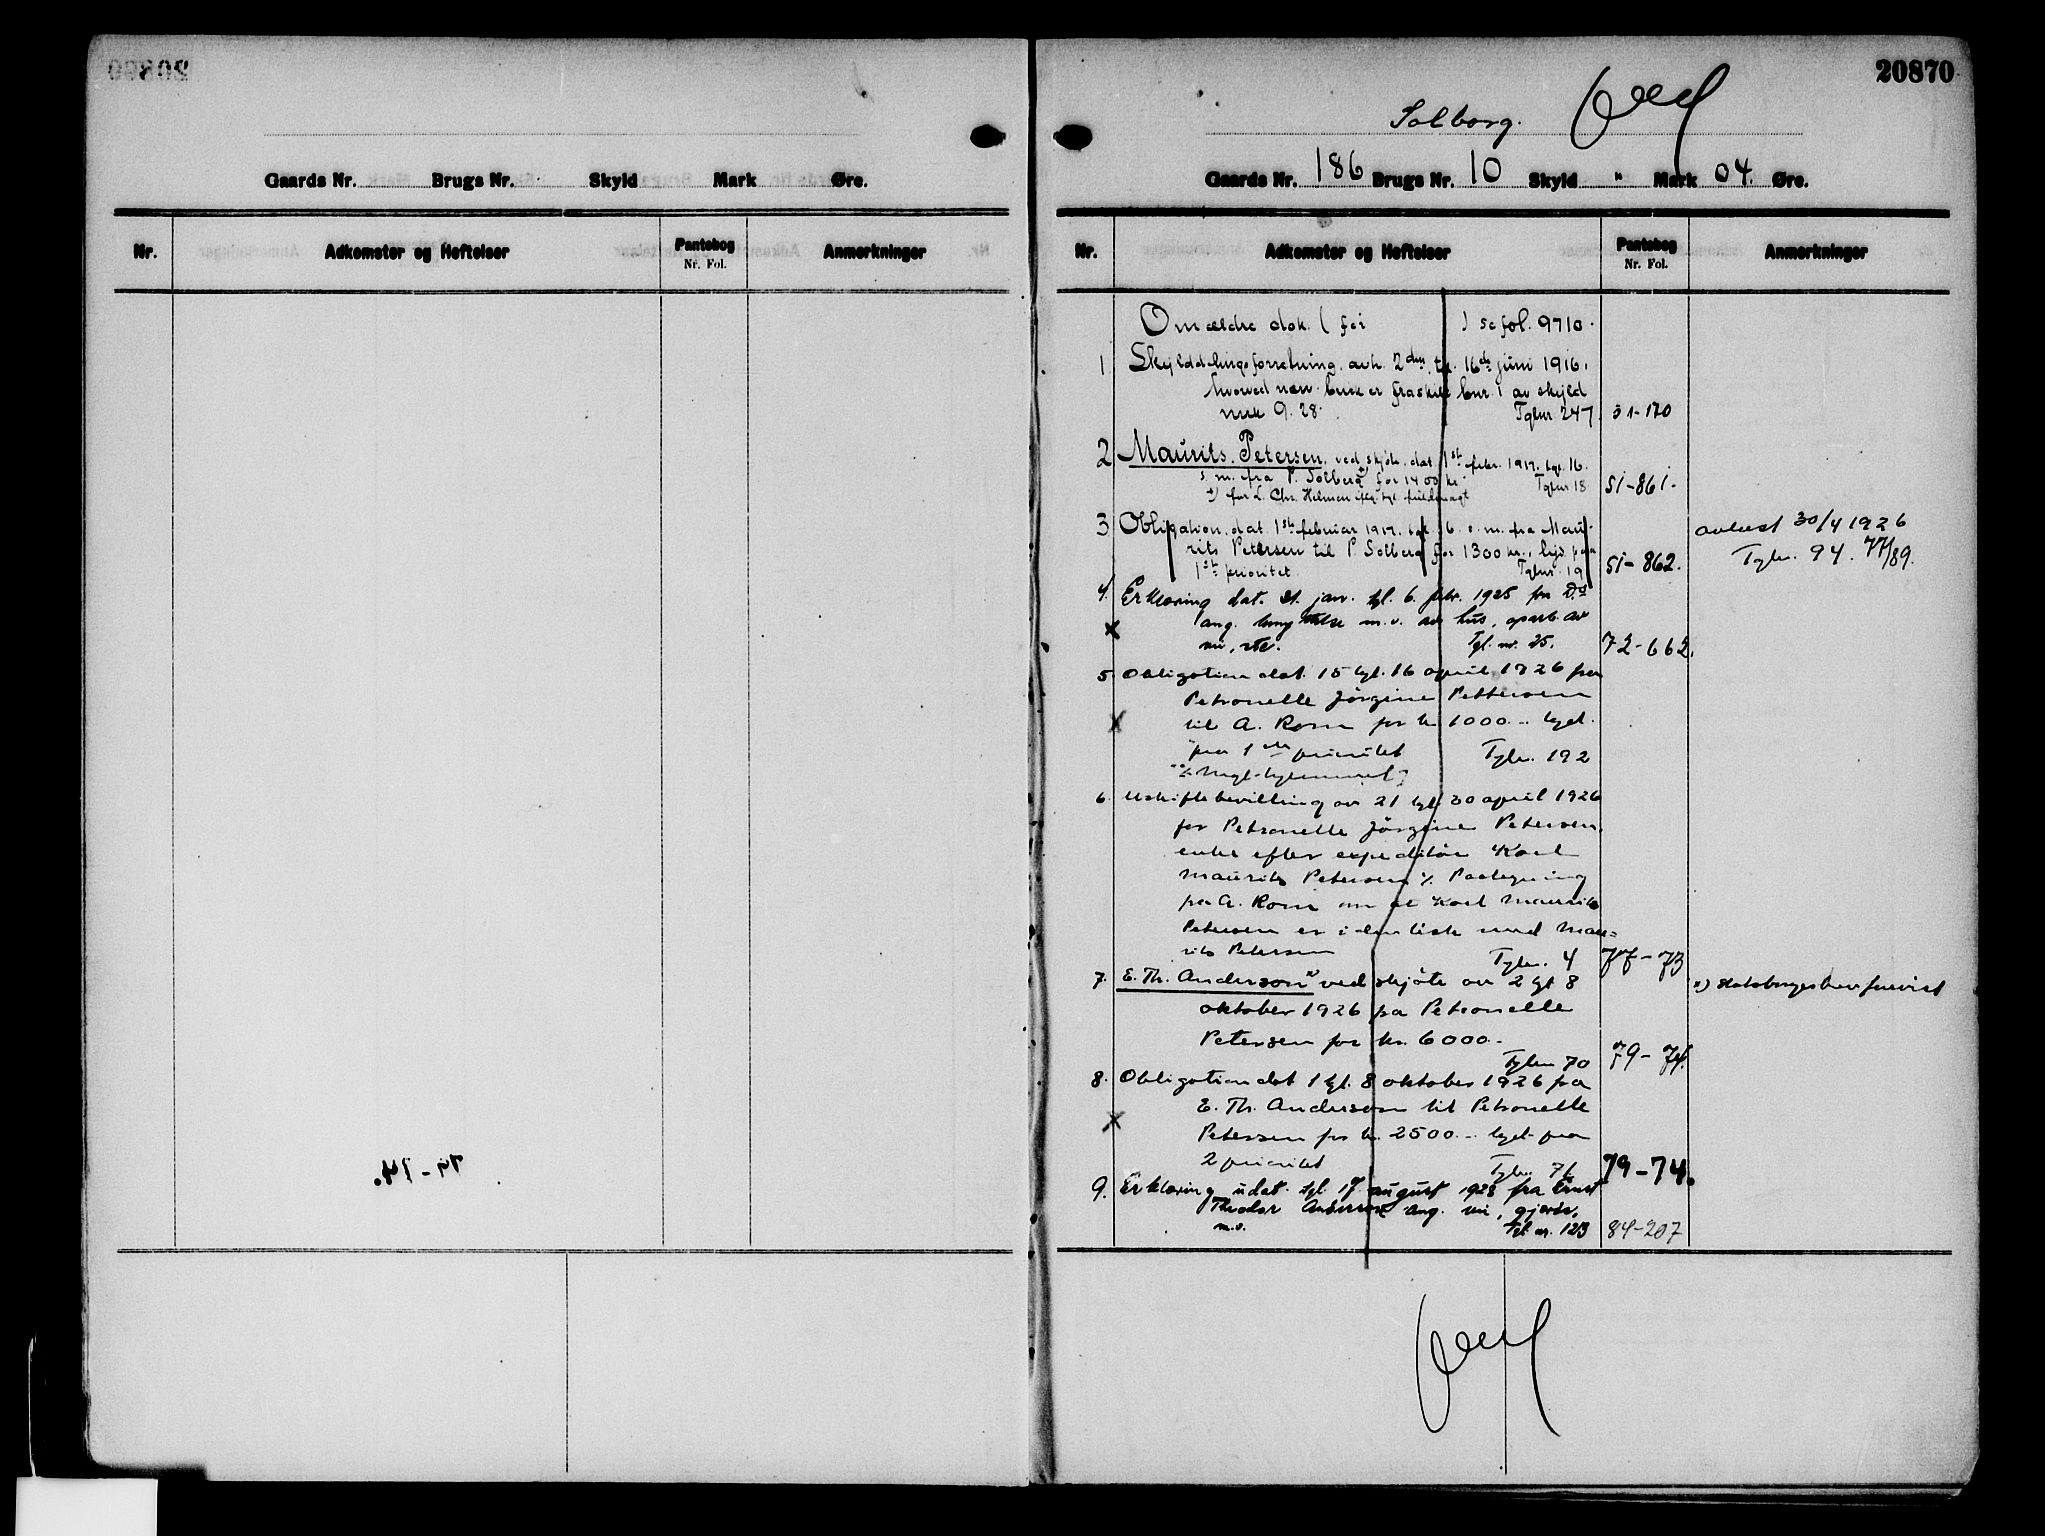 Gaards Nr. Brugs Nr. Skyld Mark Øre.
Nr. Adkomster og Heftelser Pantebog Nr. Fol. Anmerkninger
20870
Solborg.
Gaards Nr. 186 Brugs Nr. 10 Skyld " Mark 04. Øre.
Nr. Adkomster og Heftelser Pantebog Nr. Fol. Anmerkninger
Om ældre dok. ( før ) se fol. 9710.
1 Skylddelingsforretning avh. 2den, tgl. 16de juni 1916,
hvorved nærv. bruk er fraskilt bnr. 1 av skyld
mrk 9.28. Tgbnr 247. 51-170
2 Maurits Petersen ved skjøte dat. 1st febr. 1917. tgl. 16.
s. m. fra P. Solberg +) for 1400 kr. Tgbnr 18 51-861.
+) for L. Chr. iflg. tgl. fuldmagt
3 Obligation dat. 1st februar 1917. tgl. 16. s. m. fra Mau-
rits Petersen til P. Solberg for 1300 kr., lyd. paa
1st prioritet. Tgbnr. 19 51-862. avlæst 30/4 1926
Tgbr. 94. 77/89.
4. Erklæring dat. 21. jan. tgl. 6. febr. 1925 fra Ds
ang. benyttelse m.v. av hus, oparb. av
vei, etc. Tgl. nr. 25. 72-662.
5 Obligation dat. 15 tgl. 16 april 1926 fra
Petronelle Jörgine Pettersen
til A. Rom for kr 1000.- lyd.
paa 1ste prioritet Tgbr. 192
6. Uskiftebevilling av 21 tgl. 30 april 1926
for Petronelle Jörgine Petersen,
enke efter expeditör Karl
Maurits Petersen % Paategning
fra A. Rom om at Karl Maurits
Petersen er identisk med Mau-
rits Petersen Tgbr. 4 77-73
7. E. Th. Anderson x) ved skjöte av 2 tgl 8 x) Statsborgerbrev forevist
oktober 1926 fra Petronelle
Petersen for kr. 6000.-
Tgbr. 70 79-74.
8. Obligation dat 1 tgl. 8 oktober 1926 fra
E. Th. Anderson til Petronelle
Petersen for kr. 2500.- lyd. paa
2 prioritet Tgbr. 71. 79-74.
9. Erklæring udat. tgl. 17 august 1928 fra Ernst
Theodor Anderson ang. vei, gjerde,
m.v. Tgl. nr. 123 84-207